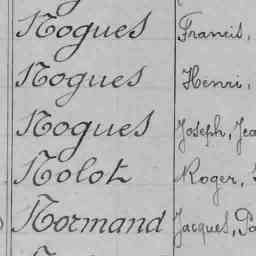 Nogues Francis,
Nogues Henri,
Nogues Joseph, Jea
Nolot Roger,
Normand Jacques, Pa